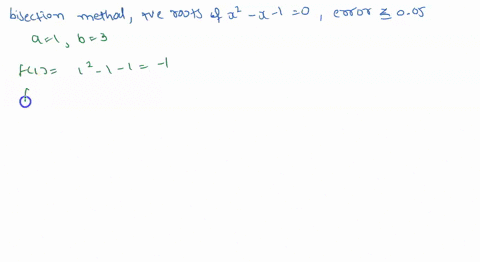 bisection methal, +ve roots of x² - x - 1 = 0, error ≤ 0.05
a = 1, b = 3
f(1) = 1² - 1 - 1 = -1
f